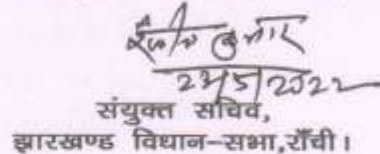 कुमार
24/5/2022
संयुक्त सचिव,
झारखण्ड विधान-सभा,राँची।